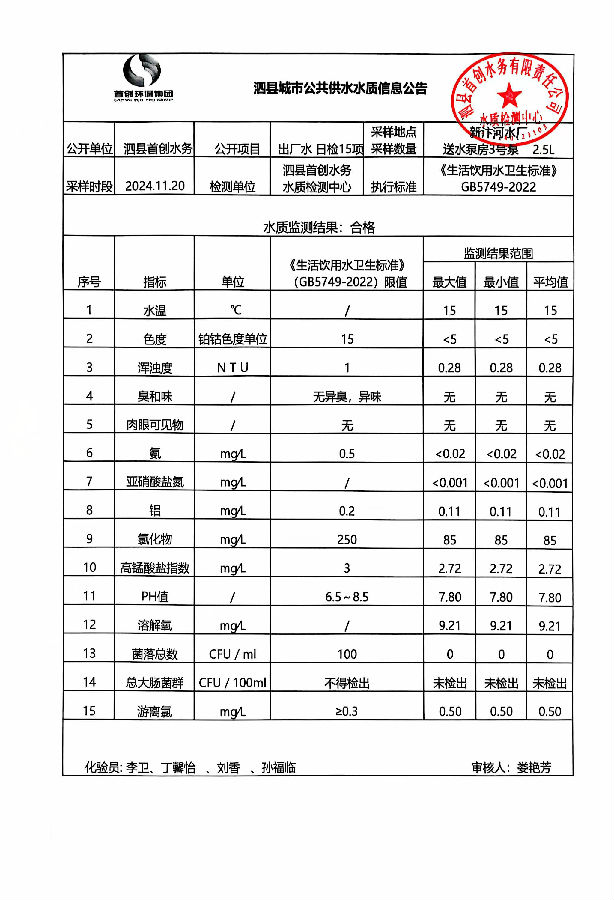 首创环保集团
CAPITAL ECO-PRO GROUP
泗县城市公共供水水质信息公告
泗县首创水务有限责任公司
水质检测中心
公开单位 泗县首创水务 公开项目 出厂水 日检15项 采样地点 采样数量 新汴河水厂 送水泵房3号泵 2.5L
采样时段 2024.11.20 检测单位 泗县首创水务 水质检测中心 执行标准 《生活饮用水卫生标准》 GB5749-2022
水质监测结果：合格
序号 指标 单位 《生活饮用水卫生标准》 （GB5749-2022）限值 监测结果范围
最大值 最小值 平均值
1 水温 ℃ / 15 15 15
2 色度 铂钴色度单位 15 <5 <5 <5
3 浑浊度 N T U 1 0.28 0.28 0.28
4 臭和味 / 无异臭，异味 无 无 无
5 肉眼可见物 / 无 无 无 无
6 氨 mg/L 0.5 <0.02 <0.02 <0.02
7 亚硝酸盐氮 mg/L / <0.001 <0.001 <0.001
8 铝 mg/L 0.2 0.11 0.11 0.11
9 氯化物 mg/L 250 85 85 85
10 高锰酸盐指数 mg/L 3 2.72 2.72 2.72
11 PH值 / 6.5～8.5 7.80 7.80 7.80
12 溶解氧 mg/L / 9.21 9.21 9.21
13 菌落总数 CFU / ml 100 0 0 0
14 总大肠菌群 CFU / 100ml 不得检出 未检出 未检出 未检出
15 游离氯 mg/L ≥0.3 0.50 0.50 0.50
化验员: 李卫、丁馨怡 、刘香 、孙福临 审核人：娄艳芳